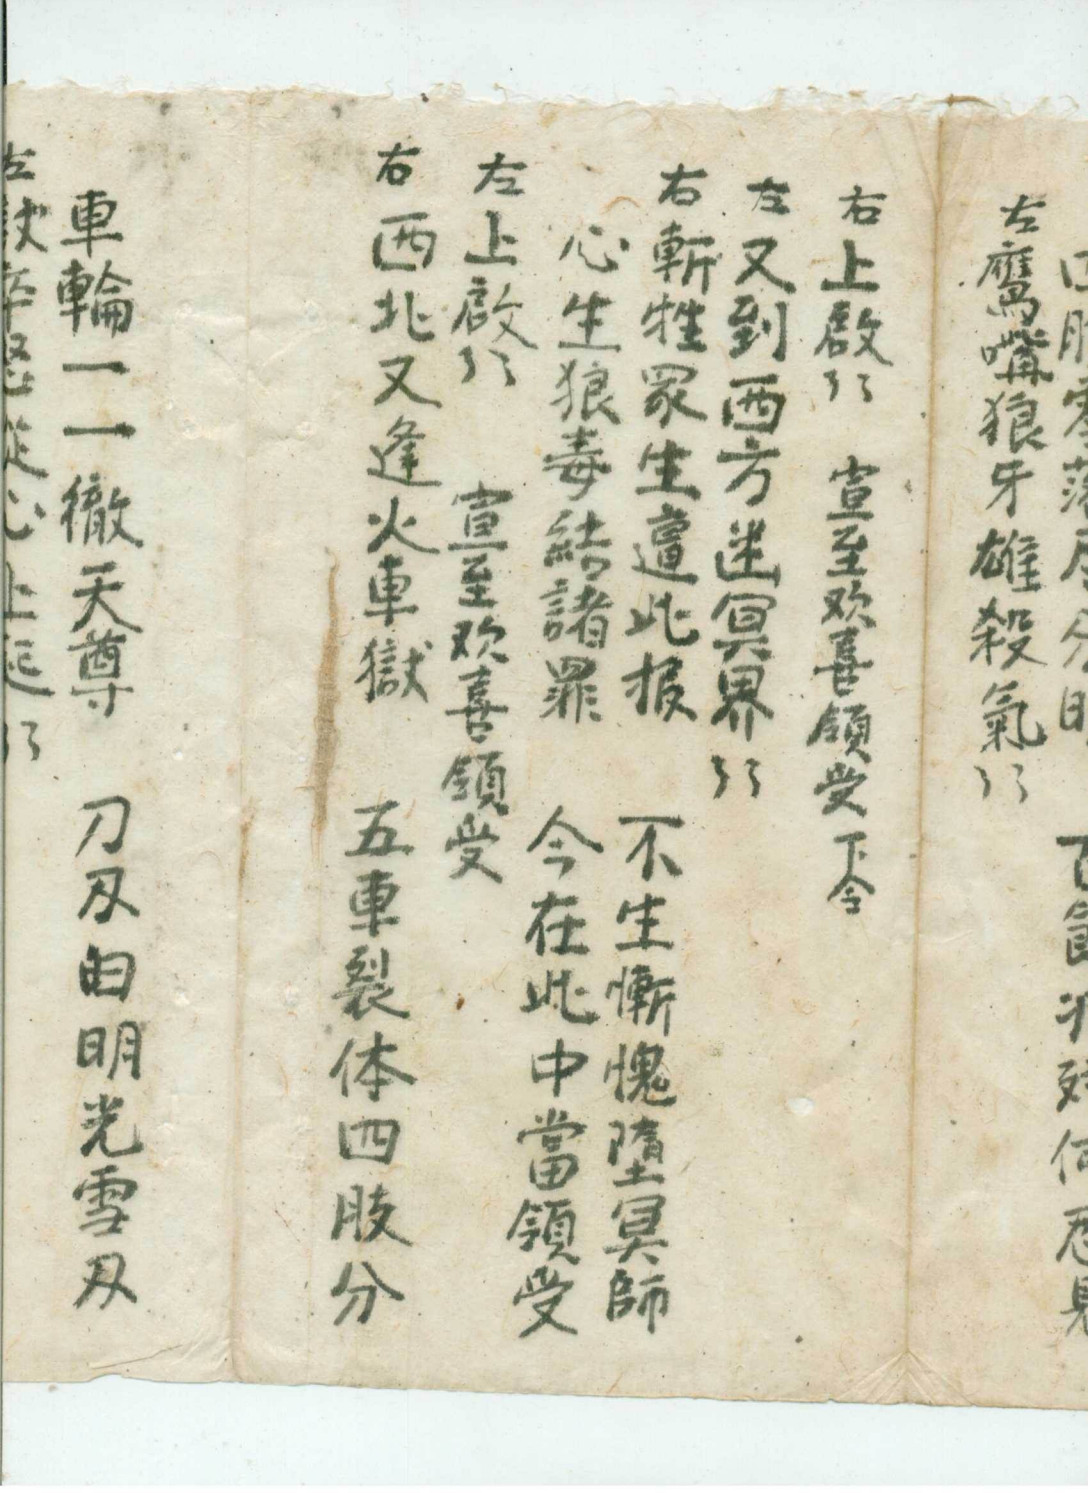 零落
左鹰嘴狼牙雄殺氣
右上啟 宣至欢喜領受 下令
左又到西方迷冥界
右斬牲眾生遭此报 不生慚愧墮冥師
心生狼毒結諸罪 今在此中當領受
左上啟 宣至欢喜領受
右西北又逢火車獄 五車裂体四肢分
車輪一一徹天尊 刀刃白明光雪刃
左 心上起